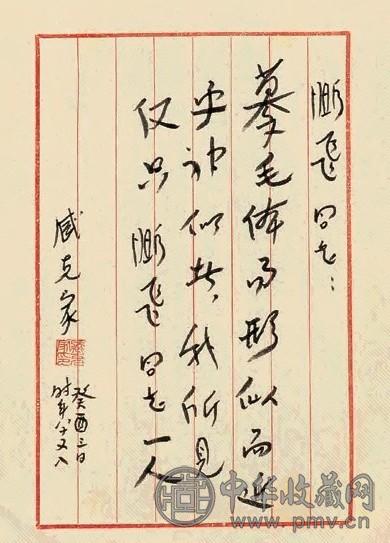 飞同志：
摹毛体得形似而近
乎神似者，我所见
仅只飞同志一人
臧克家
癸酉三日
时年八十又八
中华收藏网
www.pmv.cn